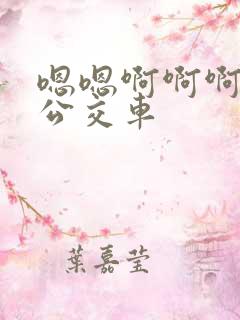 嗯嗯啊啊啊
公交车
葉嘉莹